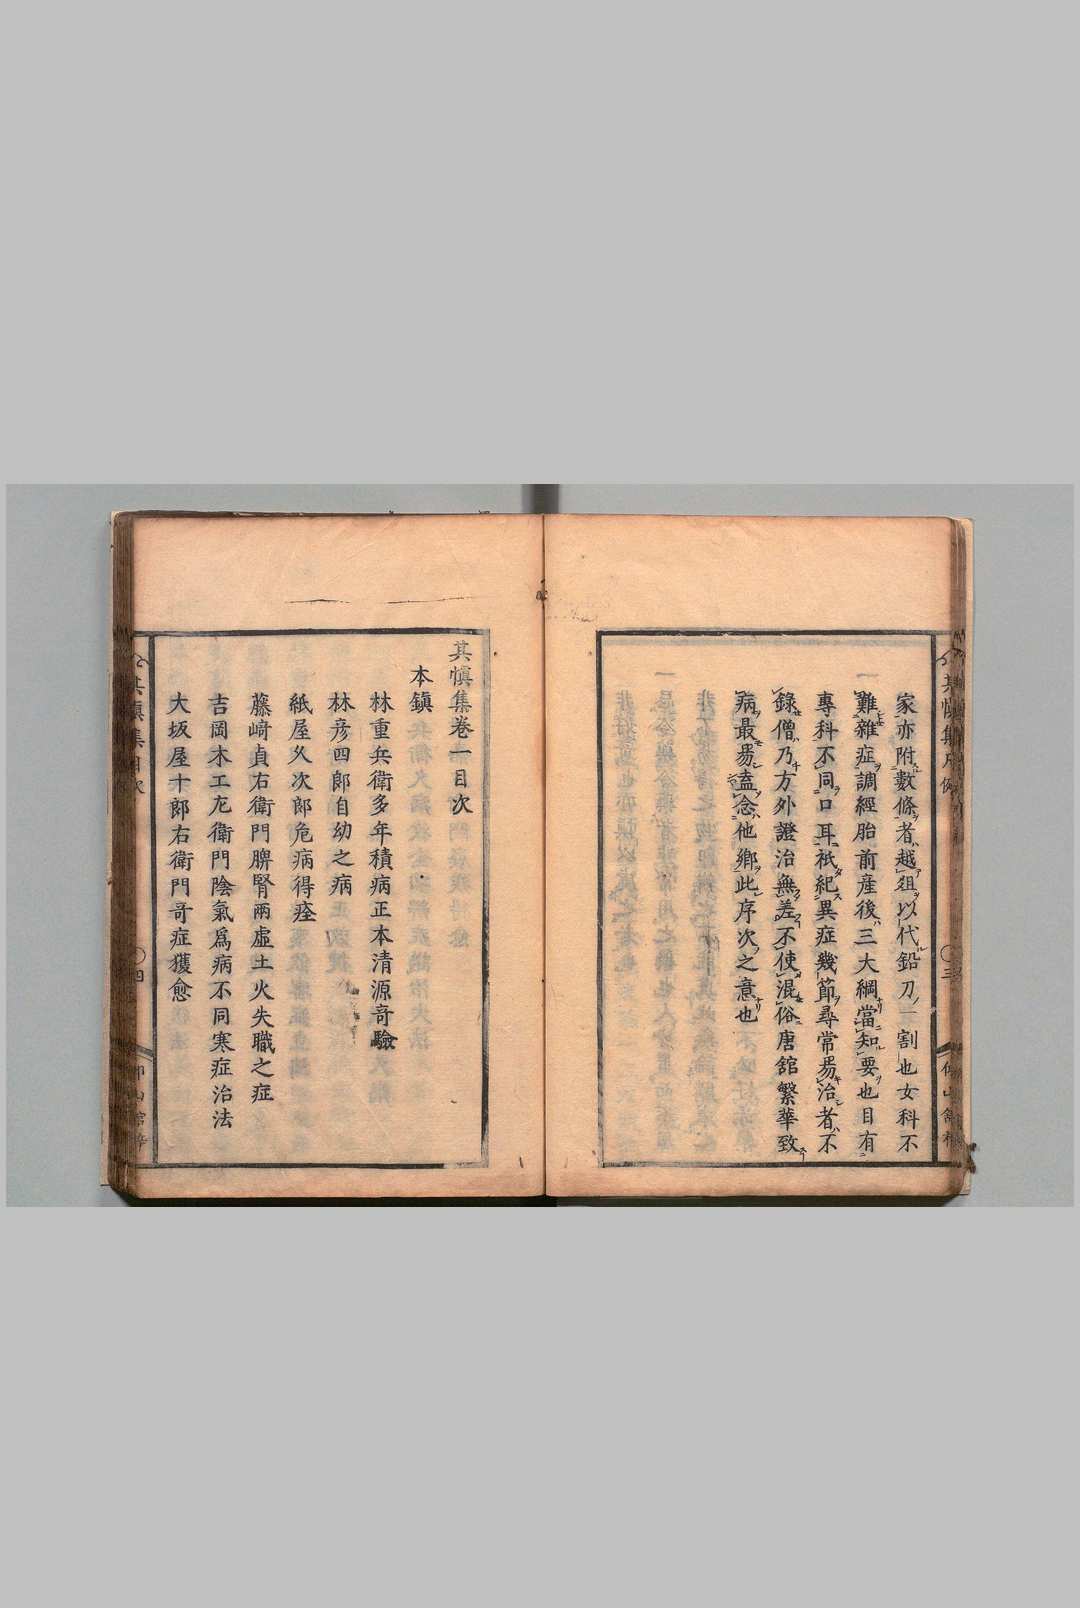 家亦附數條者越俎以代鉛刀一割也女科不
難雜症調經胎前産後三大綱當知要也目有
專科不同口耳祇紀異症幾節尋常易治者不
錄僧乃方外證治無差不使混俗唐舘繁華致
病最易盍念他鄉此序次之意也
其慎集卷一目次
本鎮
林重兵衛多年積病正本清源奇驗
林彦四郎自幼之病
紙屋久次郎危病得痊
藤﨑貞右衛門脾腎兩虛土火失職之症
吉岡木工左衛門陰氣爲病不同寒症治法
大坂屋十郎右衛門奇症獲愈